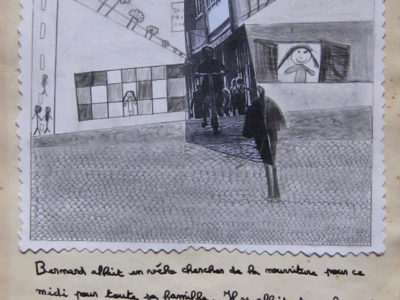 Bernard allait en vélo chercher de la nourriture pour ce
midi pour toute sa famille. Il